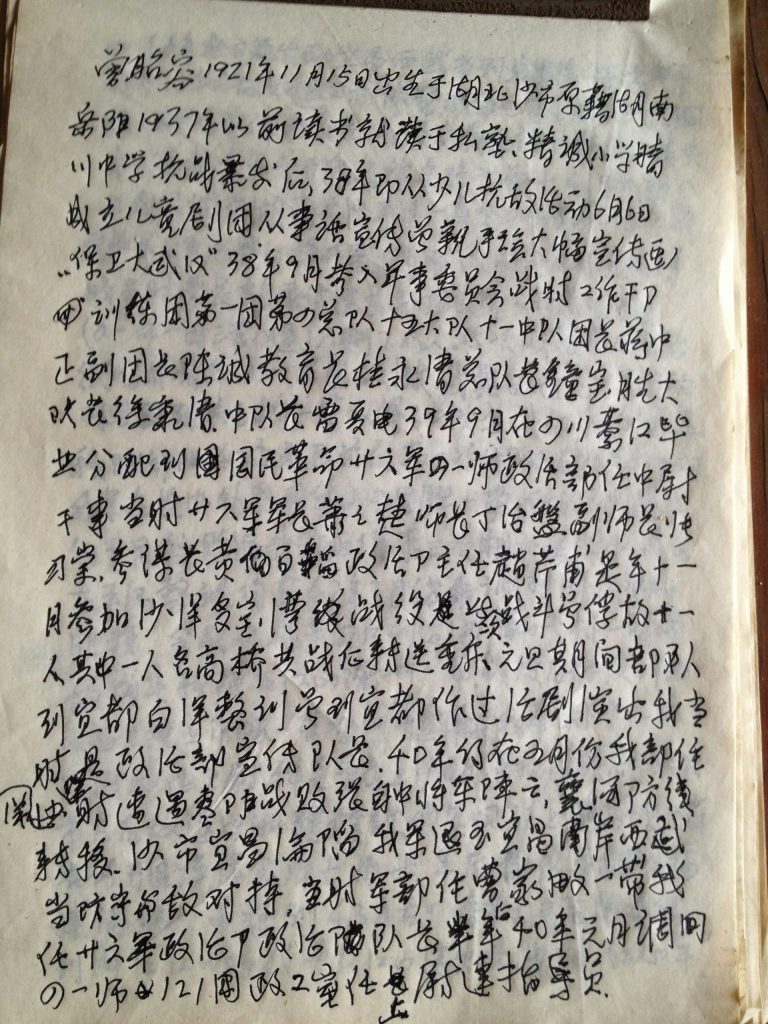 曾昭容1921年11月15日出生于湖北沙市原籍湖南
岳阳1937年以前读书就读于私塾、精诚小学晴
川中学抗战暴发后,38年即从少儿抗敌活动6月6日
成立儿童剧团从事话宣传曾亲手绘大幅宣传画
“保卫大武汉”38年9月考入军事委员会战时工作干卩
训练团第一团第四总队十五大队十一中队团长蒋中
正副团长陈诚教育长桂永清总队长 胜大
队长徐 清.中队长雷夏电39年9月在四川綦江毕
业分配到国民革命廿六军四一师政治部任中尉
干事当时廿六军军长萧之楚师长丁治磐副师长
参谋长黄 政治卩主任赵芹甫是年十一
月参加沙洋多宝湾 战役是 战斗曾俘敌十一
人其中一人名高桥共战后转送重庆.元旦期间部队
到宜都白洋整训曾到宜都作过话剧演出我当
时是政治部宣传队长.40年约在五月份我部住
当时遭遇枣阳战败张自忠将军阵亡,襄河防线
转移.沙市宜昌沦陷我军退至宜昌南岸西
当防守与敌对持,当时军部住曹家畈一带我
任廿六军政治卩政治队队长半年后40年元月调回
四一师121团政工室任上尉连指导员.